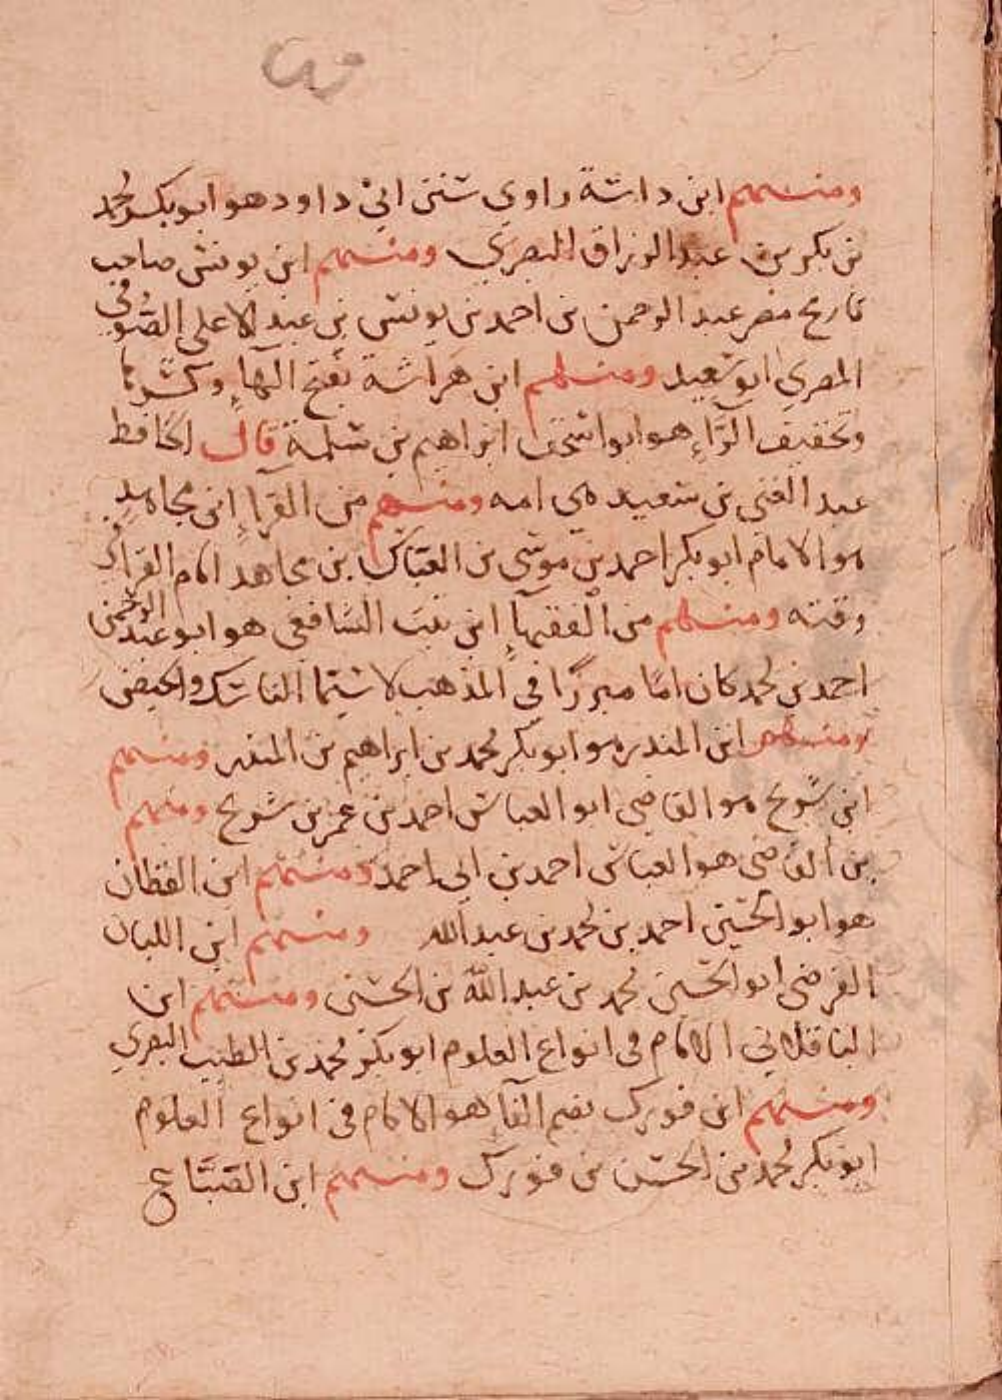 ومنهم ابن داسة راوي سنن ابي داود هو ابو بكر محمد
بن بكر بن عبد الرزاق البصري ومنهم ابن يونس صاحب
تاريخ مصر عبد الرحمن بن احمد بن يونس بن عبد الاعلى الصدفي
المصري ابو سعيد ومنهم ابن هراسة بفتح الهاء وكسرها
وتخفيف الراء هو ابو اسحق ابراهيم بن سلمة قال الحافظ
عبد الغني بن سعيد هي امه ومنهم من القراء ابن مجاهد
هو الامام ابو بكر احمد بن موسى بن العباس بن مجاهد امام القراء في
وقته ومنهم من الفقهاء ابن بنت الشافعي هو ابو عبد الرحمن
احمد بن محمد كان اماما مبرزا في المذهب لا سيما المناسك والحيض
ومنهم ابن المنذر هو ابو بكر محمد بن ابراهيم بن المنذر ومنهم
ابن سريج هو القاضي ابو العباس احمد بن عمر بن سريج ومنهم
بن القاضي هو العباس احمد بن ابي احمد ومنهم ابن القطان
هو ابو الحسين احمد بن محمد بن عبد الله ومنهم ابن اللبان
الفرضي ابو الحسين محمد بن عبد الله بن الحسن ومنهم ابن
الباقلاني الامام في انواع العلوم ابو بكر محمد بن الطيب البصري
ومنهم ابن فورك بضم الفاء هو الامام في انواع العلوم
ابو بكر محمد بن الحسن بن فورك ومنهم ابن الصباغ